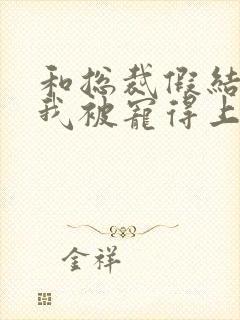 和总裁假结
我被宠得上
金祥